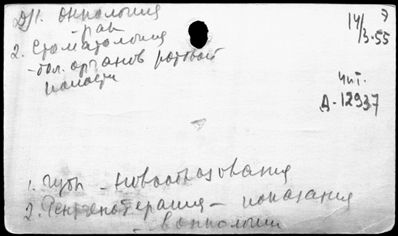 Д/1. онкология
- рак
2. Стоматология
- бол. органов ротовой
полости
14/3-55
Чит.
Д-12937
1. Губы - новообразования
2. Рентгенотерапия - показания
- в онкологии